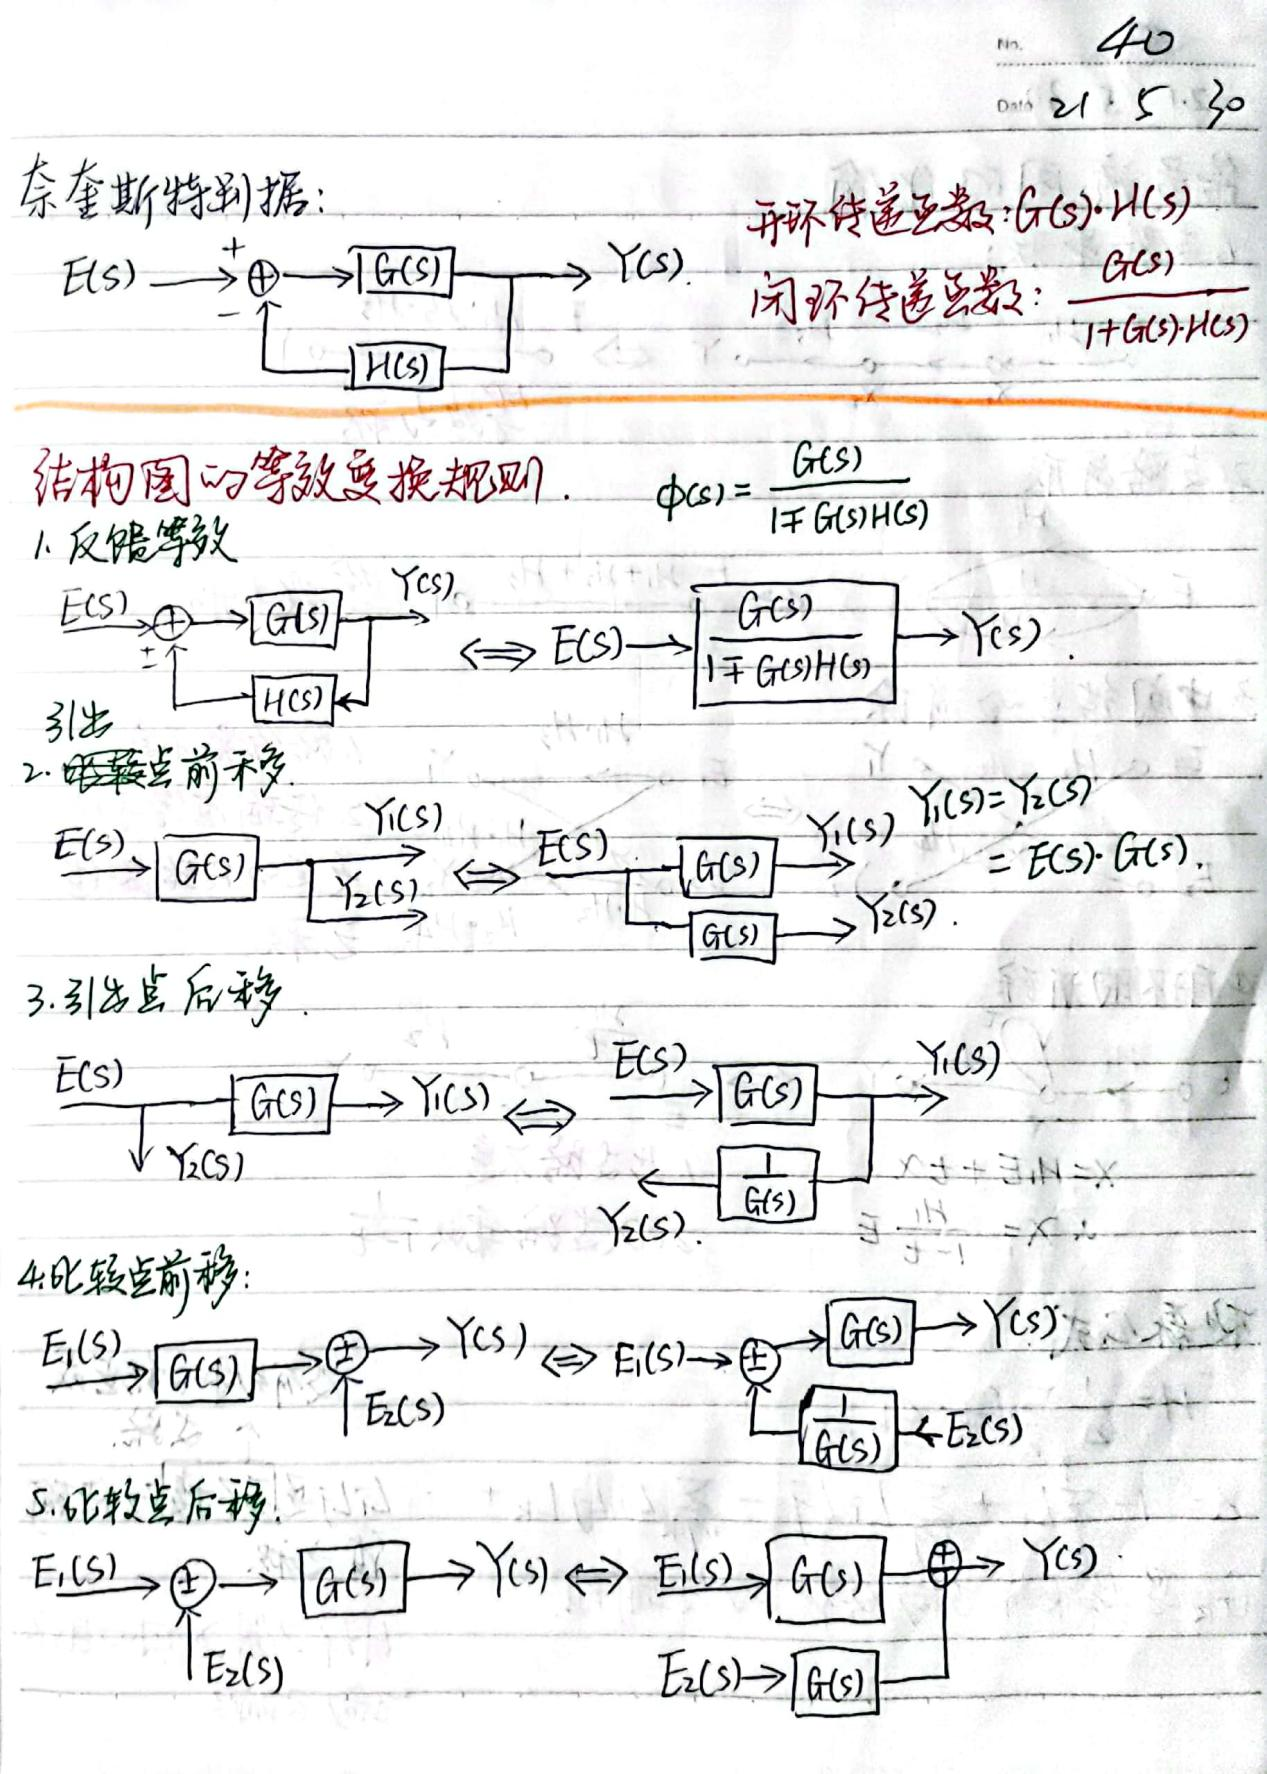 No. 40
Date 21·5·30
奈奎斯特判据:
E(s) + − ⊕ G(s) Y(s).
H(s)
开环传递函数:G(s)·H(s)
闭环传递函数: G(s) / 1+G(s)·H(s)
结构图的等效变换规则.
φ(s) = G(s) / 1∓G(s)H(s)
1. 反馈等效
E(s) ± G(s) Y(s) ⟺ E(s) → G(s) / 1∓G(s)H(s) → Y(s).
H(s)
引出
2. 点前移.
E(s) G(s) Y1(s) Y2(s) ⟺ E(s) G(s) Y1(s)
G(s) Y2(s).
Y1(s)=Y2(s)
= E(s)·G(s).
3. 引出点后移.
E(s) G(s) → Y1(s) ⟺ E(s) G(s) Y1(s)
Y2(s)
1/G(s) Y2(s).
4. 比较点前移:
E1(s) G(s) → ± → Y(s) ⟺ E1(s) → ± G(s) → Y(s)
E2(s)
1/G(s) ← E2(s)
5. 比较点后移:
E1(s) → ± → G(s) → Y(s) ⟺ E1(s) G(s) → ± → Y(s)
E2(s)
E2(s) → G(s)